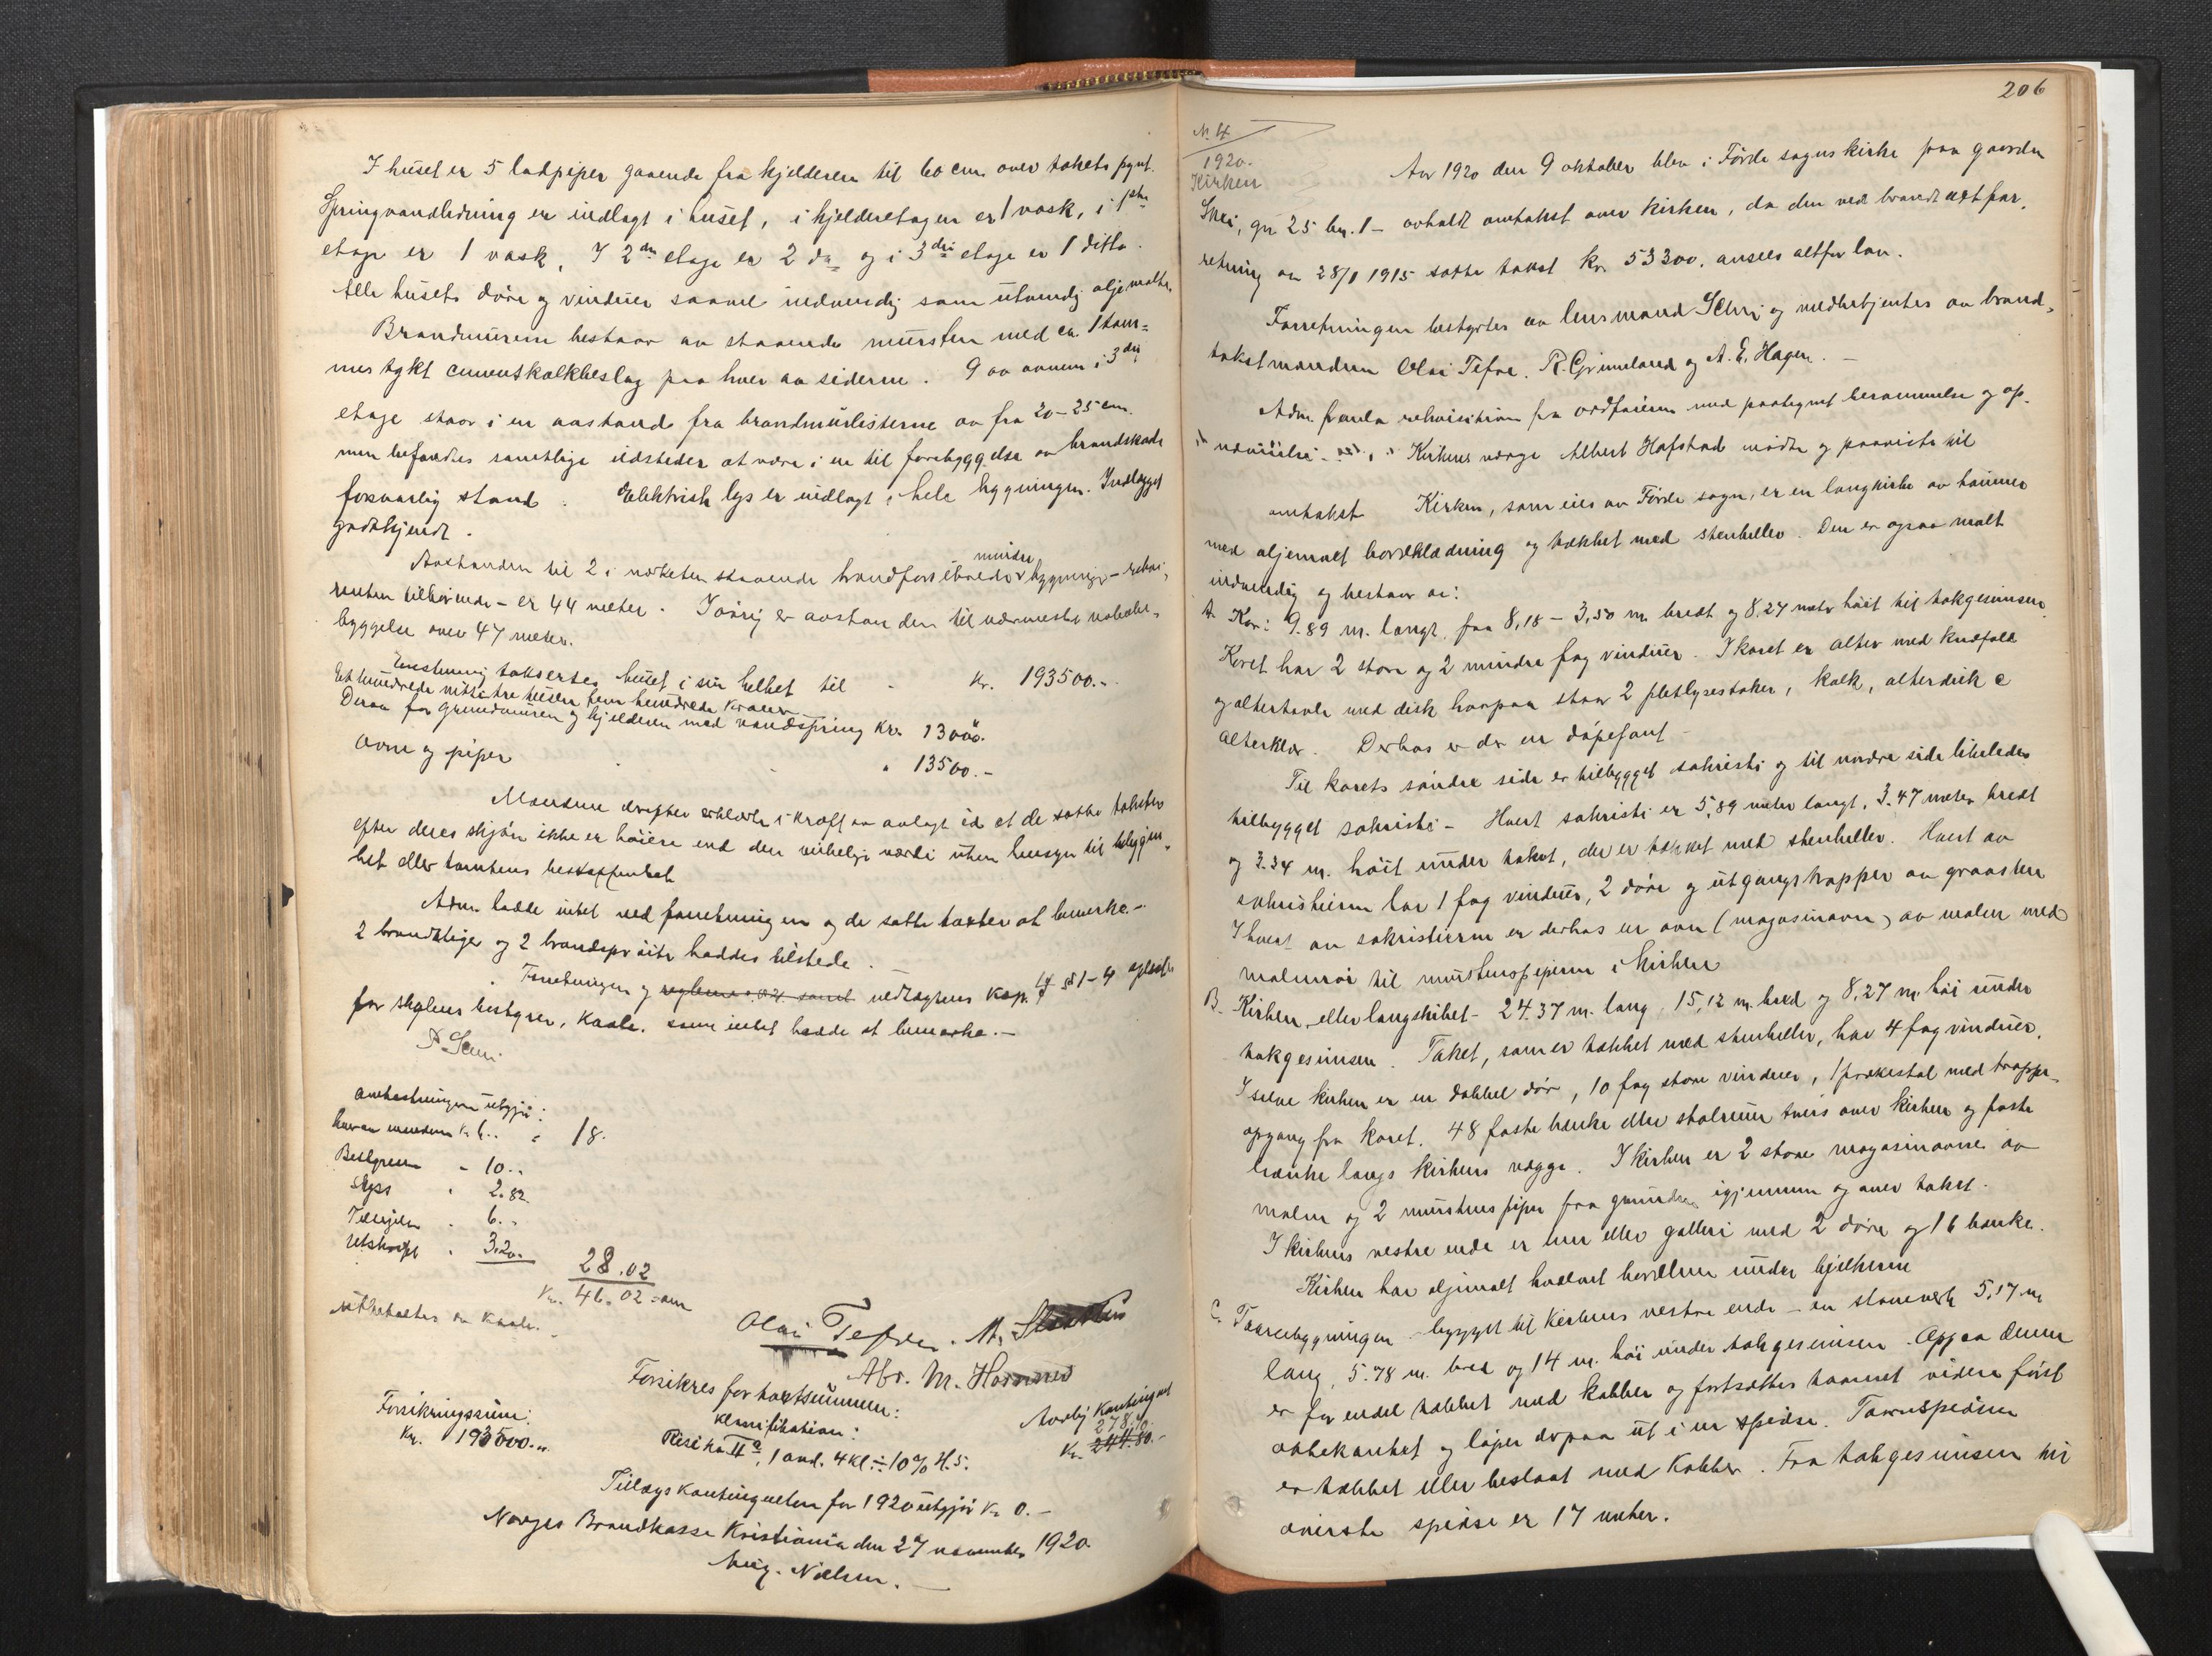 I huset er 5 ladpiper gaaende fra kjelderen til 60 cm. over takets pynt.
Springvandledning er indlagt i huset, i kjelderetagen er 1 vask, i 1ste
etage er 1 vask, I 2den etage er 2 do. og i 3die etage er 1 ditto.
Alle husets døre og vinduer saavel indvendig som utvendig oljemalte.
Brandmurene bestaar av staaende mursten med ca. 1 tom-
mes tykt cementkalkbeslag paa hver av siderne. 9 av ovnene i 3die
etage staar i en avstand fra brandmurlisterne av fra 20-25 cm.
men befandtes samtlige ildsteder at være i en til forebyggelse av brandskade
forsvarlig stand. Elektrisk lys er indlagt i hele bygningen. Indlægget
godkjendt.
Avstanden til 2 i nærheten staaende brandfarlige mindre bygninger - rekvi-
renten tilhørende - er 44 meter. Iøvrig er avstanden til nærmeste nabobe-
byggelse over 47 meter.
Enstemmig taksertes huset i sin helhet til - kr. 193500.-
Et hundrede nitti tre tusen fem hundrede kroner
Derav for grundmuren og kjelderen med vandspring kr. 13000.
ovne og piper - " 13500.-
Mændene drøfter erklærte i kraft av avlagt ed at de satte takster
efter deres skjøn ikke er høiere end den virkelige værdi uten hensyn til beliggen-
het eller tomtens beskaffenhet
Adm. hadde intet ved forretningen og de satte takster at bemerke.-
2 brandstiger og 2 brandsprøite haddes tilstede.
Forretningen og reglement samt vedtægtens kap. 4 § 1-4 oplæst
for skolens bestyrer, Kaale. som intet hadde at bemerke.-
Omkostningene utgjør:
hver av mændene kr. 6.. " 18.
Bestyreren " 10..
Skyss " 2.82.
Tællepen " 6..
Utskrift " 3.20.
28.02
Kr. 46.02 som
utbetaltes av Kaale.
Olai Tefre. A.
Abr. M.
Forsikres for takstsummen:
Forsikringssum:
Kr. 193500.-
Klasifikation:
Risiko IIa, 1 avd. 4 kl ÷ 10% H.S.
Aarlig Kontingent
278.
Kr. 244.80.-
Tillægskontingenten for 1920 utgjør Kr. 0.-
Norges Brandkasse Kristiania den 27 november 1920.
Aug. Nielsen.
206
No. 4
1920.
Kirken
Aar 1920 den 9 oktober blev i Førde sogns kirke paa gaarden
Skei, gn 25 br. 1 - avholdt omtakst over kirken, da den ved brandtakstfor-
retning av 28/8 1915 satte takst kr. 53300, ansees altfor lav.
Forretningen bestyrtes av lensmand Schri og medbetjentes av brand-
takstmændene Olai Tefre. R. Grimeland og A. E. Hagen. -
Adm. fremla rekvisition fra ordføreren med paategnet berammelse og op-
nævnelse. Kirkens verge Albert Hafstad mødte og paaviste til
omtakst Kirken, som eies av Førde sogn, er en langkirke av tømmer
med oljemalt bordklædning og tækket med stenheller. Den er ogsaa malt
indvendig og bestaar av:
A. Kor: 9.89 m. langt, fra 8,18 - 3,50 m. bredt og 8.27 meter høit til takgesimsen.
Koret har 2 store og 2 mindre fag vinduer. I koret er alter med knefald
og altertavle med disk hvorpaa staar 2 pletlysestaker, kalk, alterdisk &
alterklæ. Derhos er der en døpefont -
Til korets søndre side er tilbygget sakristi og til nordre side likeledes
tilbygget sakristi - Hvert sakristi er 5,89 meter langt, 3.47 meter bredt
og 3.34 m. høit under taket, der er tækket med stenheller. Hvert av
sakristierne har 1 fag vinduer, 2 døre og utgangstrapper av graasten
I hvert av sakristierne er derhos en ovn (magasinovn) av malm med
malmrør til murstenspiperne i Kirken
B. Kirken eller langskibet - 24.37 m. lang, 15,12 m. bred og 8,27 m. høi under
takgesimsen. Taket, som er tækket med stenheller, har 4 fag vinduer.
I selve kirken er en dobbel dør, 10 fag store vinduer, 1 prækestol med trappe-
opgang fra koret. 48 faste bænke eller stolrum tvers over kirken og faste
bænke langs kirkens vægge. I kirken er 2 store magasinovne av
malm og 2 murstenspiper fra grunden igjennem og over taket.
I kirkens vestre ende er lem eller galleri med 2 døre og 16 bænke.
Kirken har oljemalt hvælvet bordtem under bjelkerne
C. Taarnbygningen - bygget til Kirkens vestre ende - en stavverk 5,17 m
lang, 5.78 m. bred og 14 m. høi under takgesimsen. Oppaa denne
er for endel tækket med kobber og fortsættes taarnet videre først
ottekantet og løper derpaa ut i en spidse. Taarnspidsen
er tækket eller beslaat med Kobber. Fra takgesimsen til
øverste spidse er 17 meter.